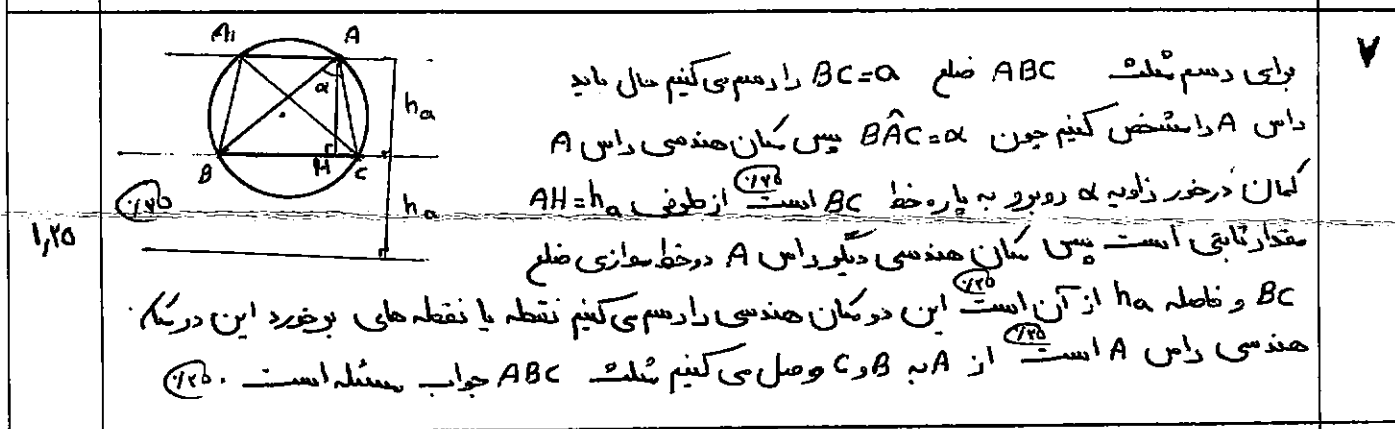 ۷
برای رسم مثلث ABC ضلع BC=a را رسم می کنیم حال باید
راس A را مشخص کنیم چون BÂC=α پس مکان هندسی راس A
کمان درخور زاویه α روبرو به پاره خط BC است (۰/۲۵) از طرفی AH=ha
مقدار ثابتی است پس مکان هندسی دیگر راس A دو خط موازی ضلع
BC و فاصله ha از آن است (۰/۲۵) این دو مکان هندسی را رسم می کنیم نقطه یا نقطه های برخورد این دو مکان
هندسی راس A است (۰/۲۵) از A به B و C وصل می کنیم مثلث ABC جواب مسئله است . (۰/۲۵)
A1 A
α
ha
B H C
ha
(۰/۲۵)
۱,۲۵